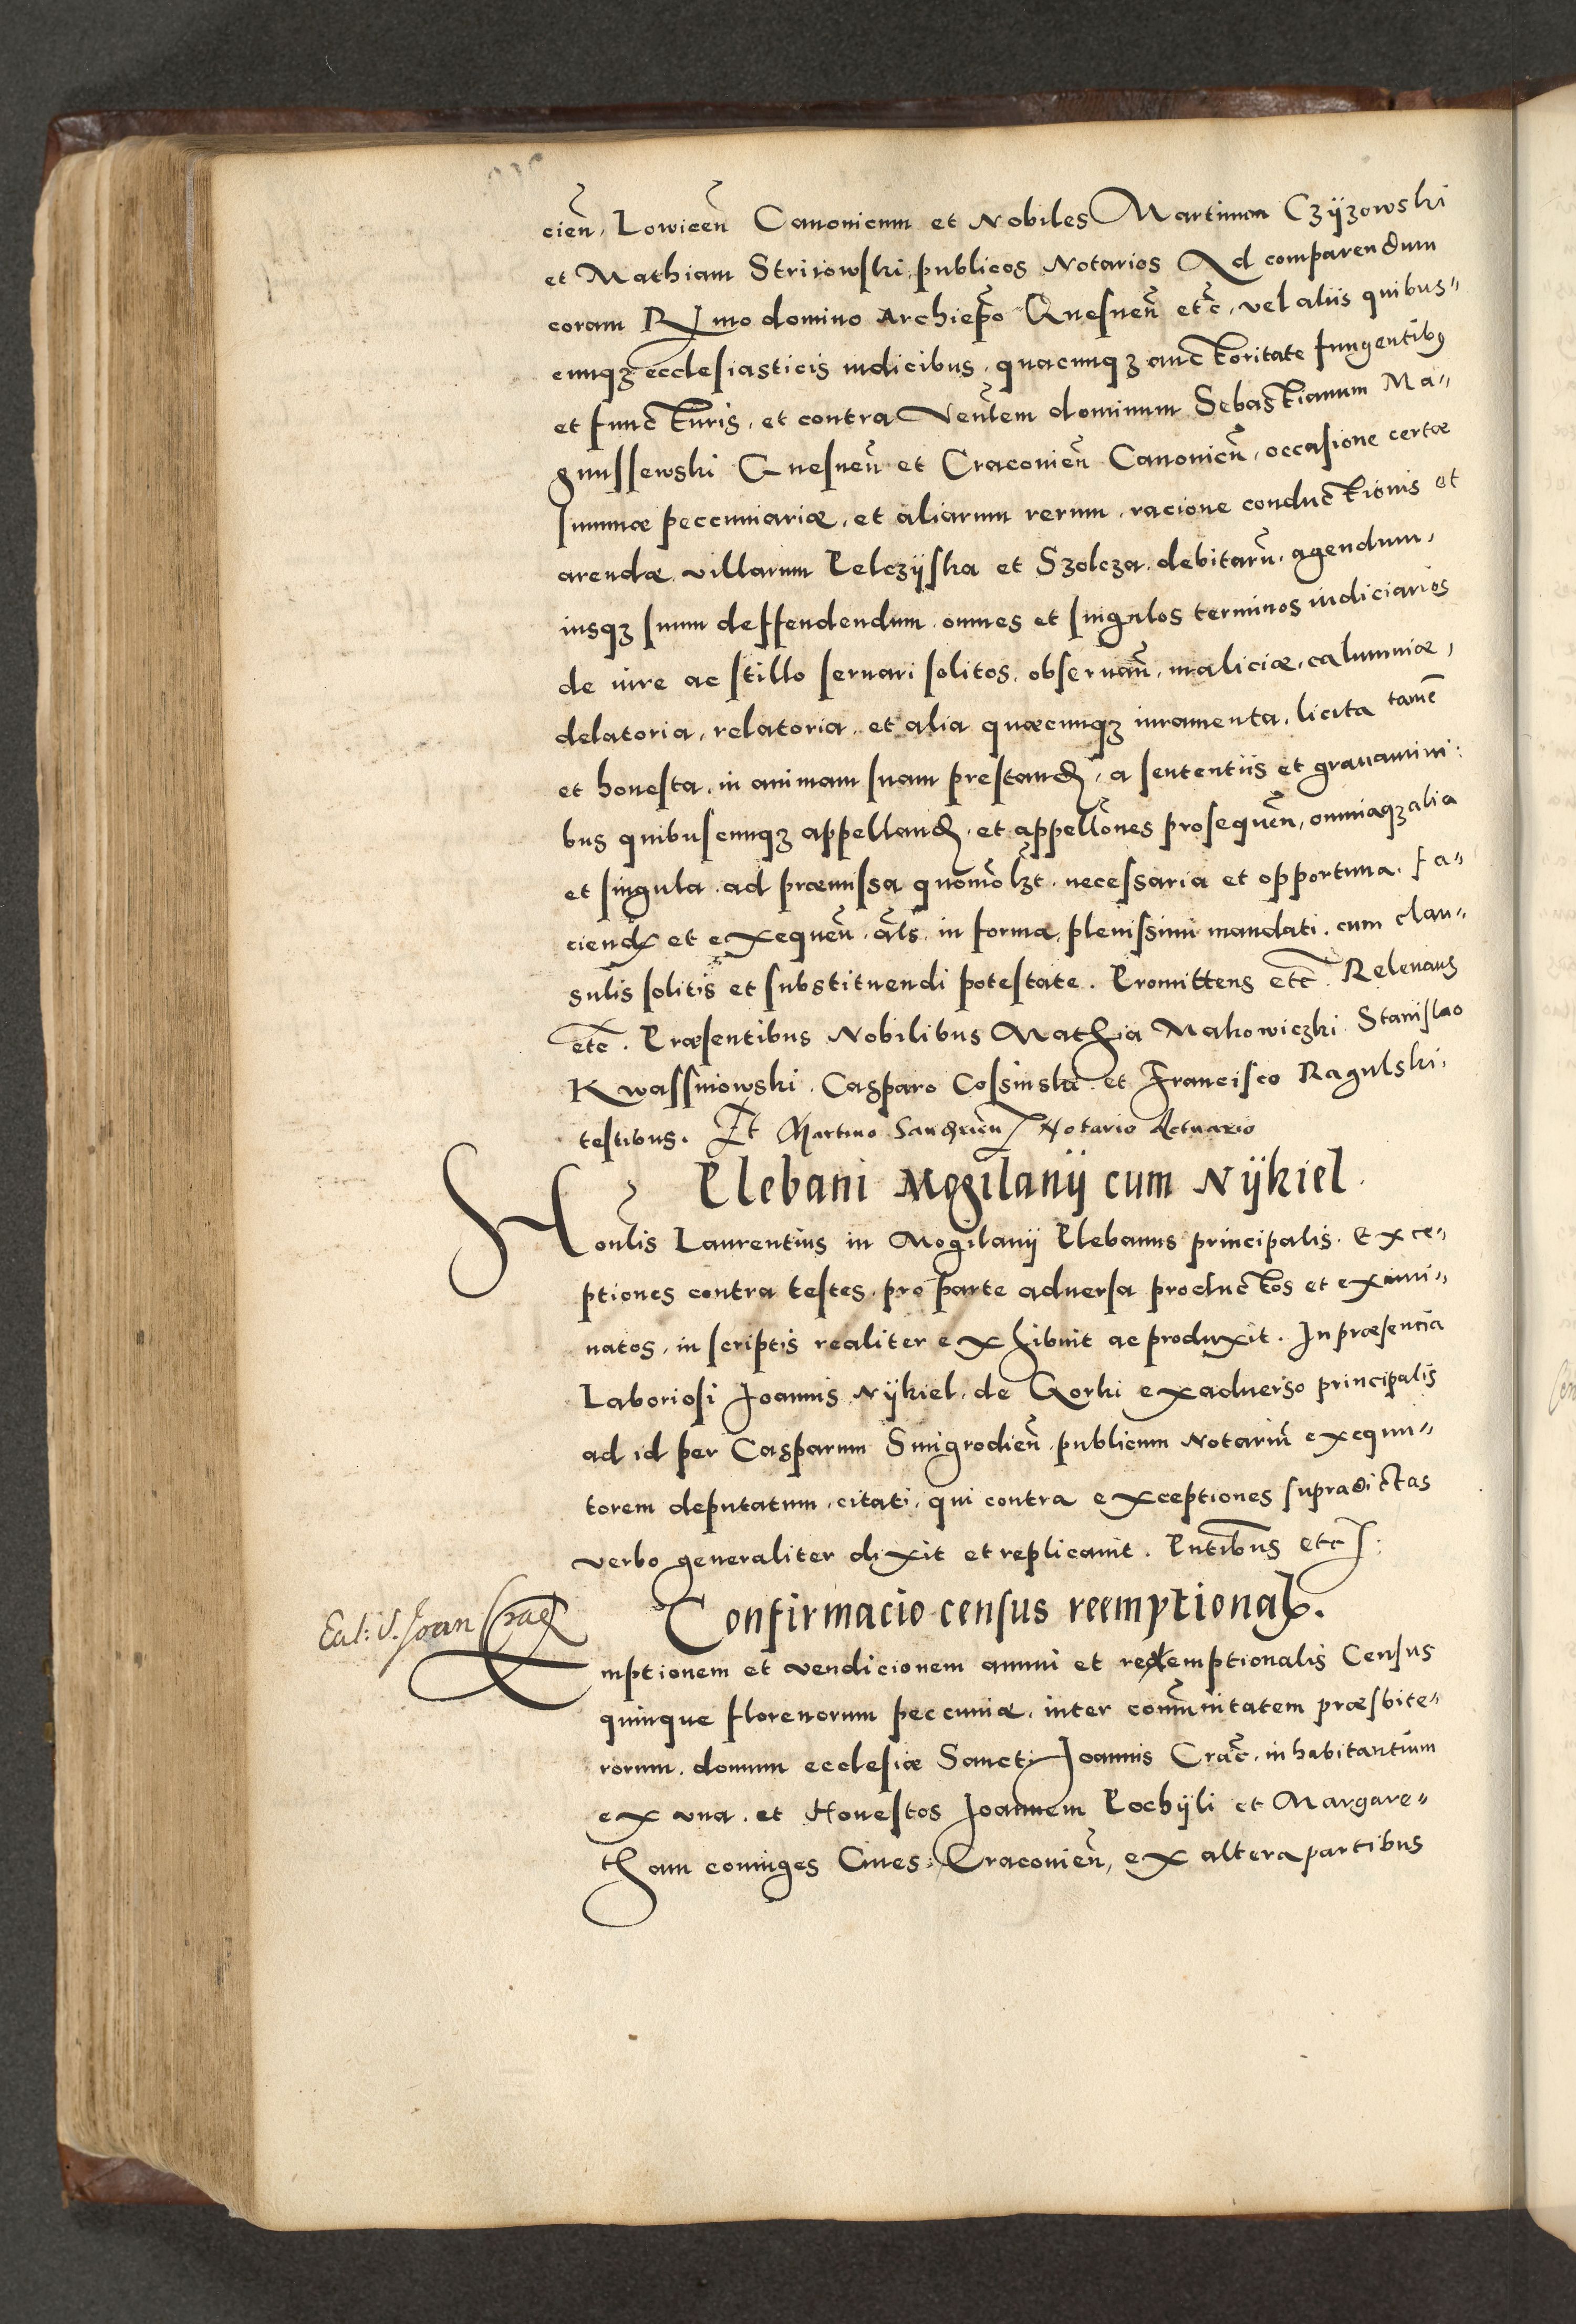 cień, Lowiceń Canonicum et Nobiles Martinum Czÿzowski
et Mathiam Striiowski, publicos Notarios Ad comparendum
coram Rmo domino Archiepo Gnesneń etc̃, vel aliis quibus"
cunqȝ ecclesiasticis iudicibus, quacunqȝ auctoritate fungentibꝰ
et functuris, et contra Venłem dominum Sebastianum Ma"
gnussewski Gnesneń et Cracovień Canonicũ, occasione certæ
summæ peccuniariæ, et aliarum rerum, racione conductionis et
arendæ villarum Pelczÿska et Szolcza, debitarũ, agendum,
iusqȝ suum deffendendum, omnes et singulos terminos iudiciarios
de iure ac stillo seruari solitos, obseruań, maliciæ, calumniæ,
delatoria, relatoria, et alia quæcunqȝ iuramenta, licita tamẽ
et honesta, in animam suam prestanđ, a sententiis et grauamini:
bus quibuscunqȝ appellanđ, et appellões prosequeń, omniaqȝ alia
et singula, ad præmissa quomołȝt, necessaria et opportuna, fa"
ciendꝭ et exequeń, als, in forma, plenissimi mandati, cum clau"
sulis solitis et substituendi potestate. Promittens etc̃. Releuans
etc̃. Præsentibus Nobilibus Mathia Makowiczki, Stanislao
Kwassniowski, Casparo Cossinski et Francisco Ragulski,
testibus. Et Martino Notario Actuario
Plebani Mogilanÿ cum Nÿkiel.
Honłis Laurentius in Mogilanÿ Plebanus principalis, Exce"
ptiones contra testes, pro parte aduersa productos et exami"
natos, in scriptis realiter exhibuit ac produxit. In præsencia
Laboriosi Joannis Nÿkiel, de Gorki exaduerso principalis
ad id per Casparum Smigrodień, publicum Notariũ exequu"
torem deputatum, citati, qui contra exceptiones supradictas
verbo generaliter dixit et replicauit. Pntibus etc:
Confirmacio census reemptionalꝭ.
Emptionem et vendicionem annui et redemptionalis Census
quinque florenorum peccuniæ, inter com̃unitatem præsbite"
rorum, domum ecclesiæ Sancti Joannis Crac̃, inhabitantium
ex una, et Honestos Joannem Pochÿli et Margare"
tham coniuges Ciues Cracovień, ex altera partibus